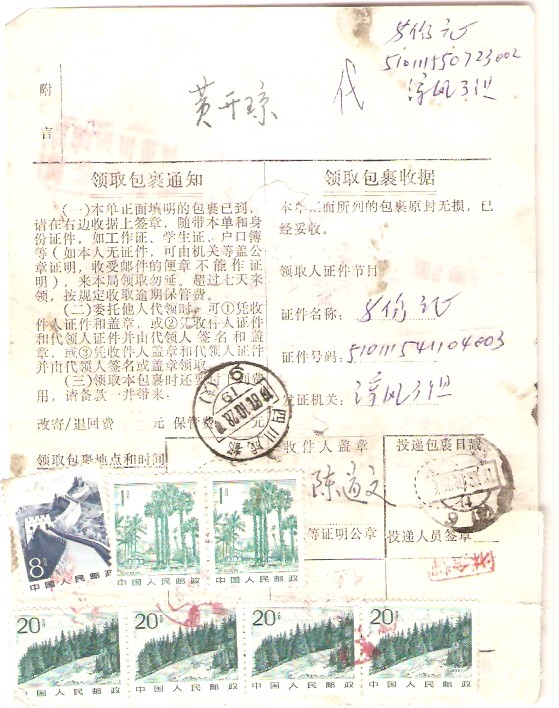 附言
黄开琼
代
身份证
510111550723002
领取包裹通知
(一)本单正面填明的包裹已到,
请在右边收据上签章,随带本单和身
份证件,如工作证、学生证、户口簿
等(如本人无证件,可由机关等盖公
章证明,收发邮件的便章不能作证
明),来本局领取勿延。超过七天来
领,按规定收取逾期保管费。
(二)委托他人代领时,可①凭收
件人证件和盖章,或②凭收件人证件
和代领人证件并由代领人签名和盖
章,或③凭收件人盖章和代领人证件
并由代领人签名或盖章领取。
(三)领取本包裹时还要付下
费
用,请备款一并带来:
改寄/退回费 元 保管费 元
领取包裹地点和时间
领取包裹收据
本单正面所列的包裹原封无损,已
经妥收。
领取人证件节目
证件名称:身份证
证件号码:510111541104003
发证机关:
收件人盖章
陈道文
等证明公章
投递包裹日戳
投递人员签章
四川成都
8分
中国人民邮政
1分
中国人民邮政
1分
中国人民邮政
20分
中国人民邮政
20分
中国人民邮政
20分
中国人民邮政
20分
中国人民邮政